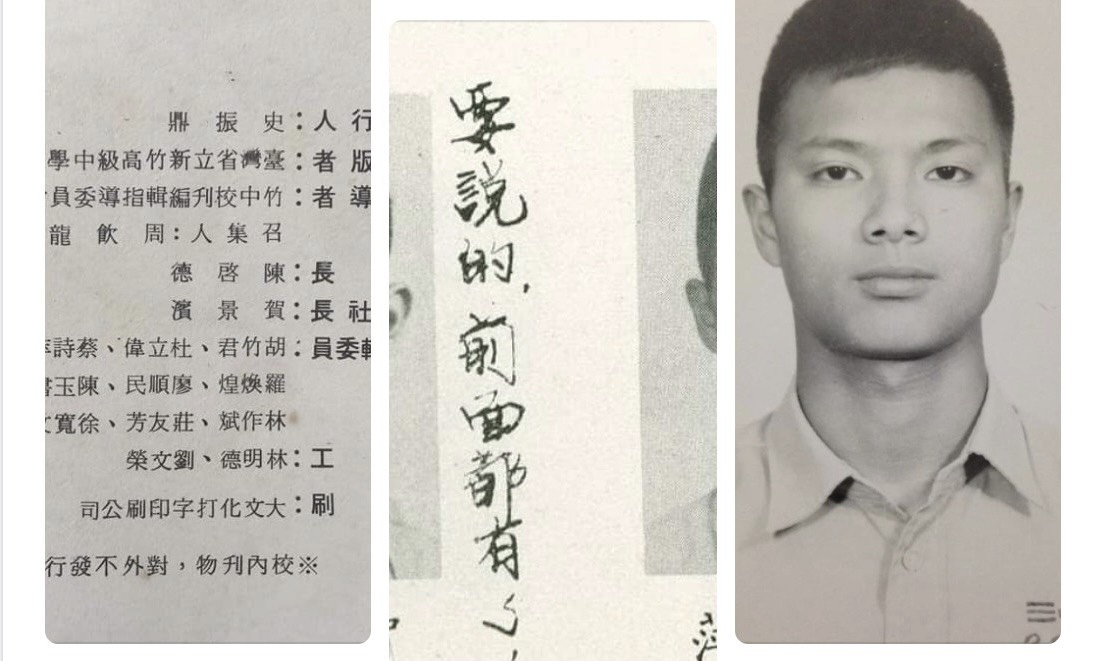 行人：史振鼎
版者：臺灣省立新竹高級中學
導者：竹中校刊編輯指導委員
召集人：周飲龍
長：陳啓德
社長：賀景濱
委員：胡竹君、杜立偉、蔡詩
羅煥煌、廖順民、陳玉
林作斌、莊友芳、徐寬
工：林明德、劉文榮
刷：大文化打字印刷公司
※校內刋物，對外不發行
要說的，前面都有了
三